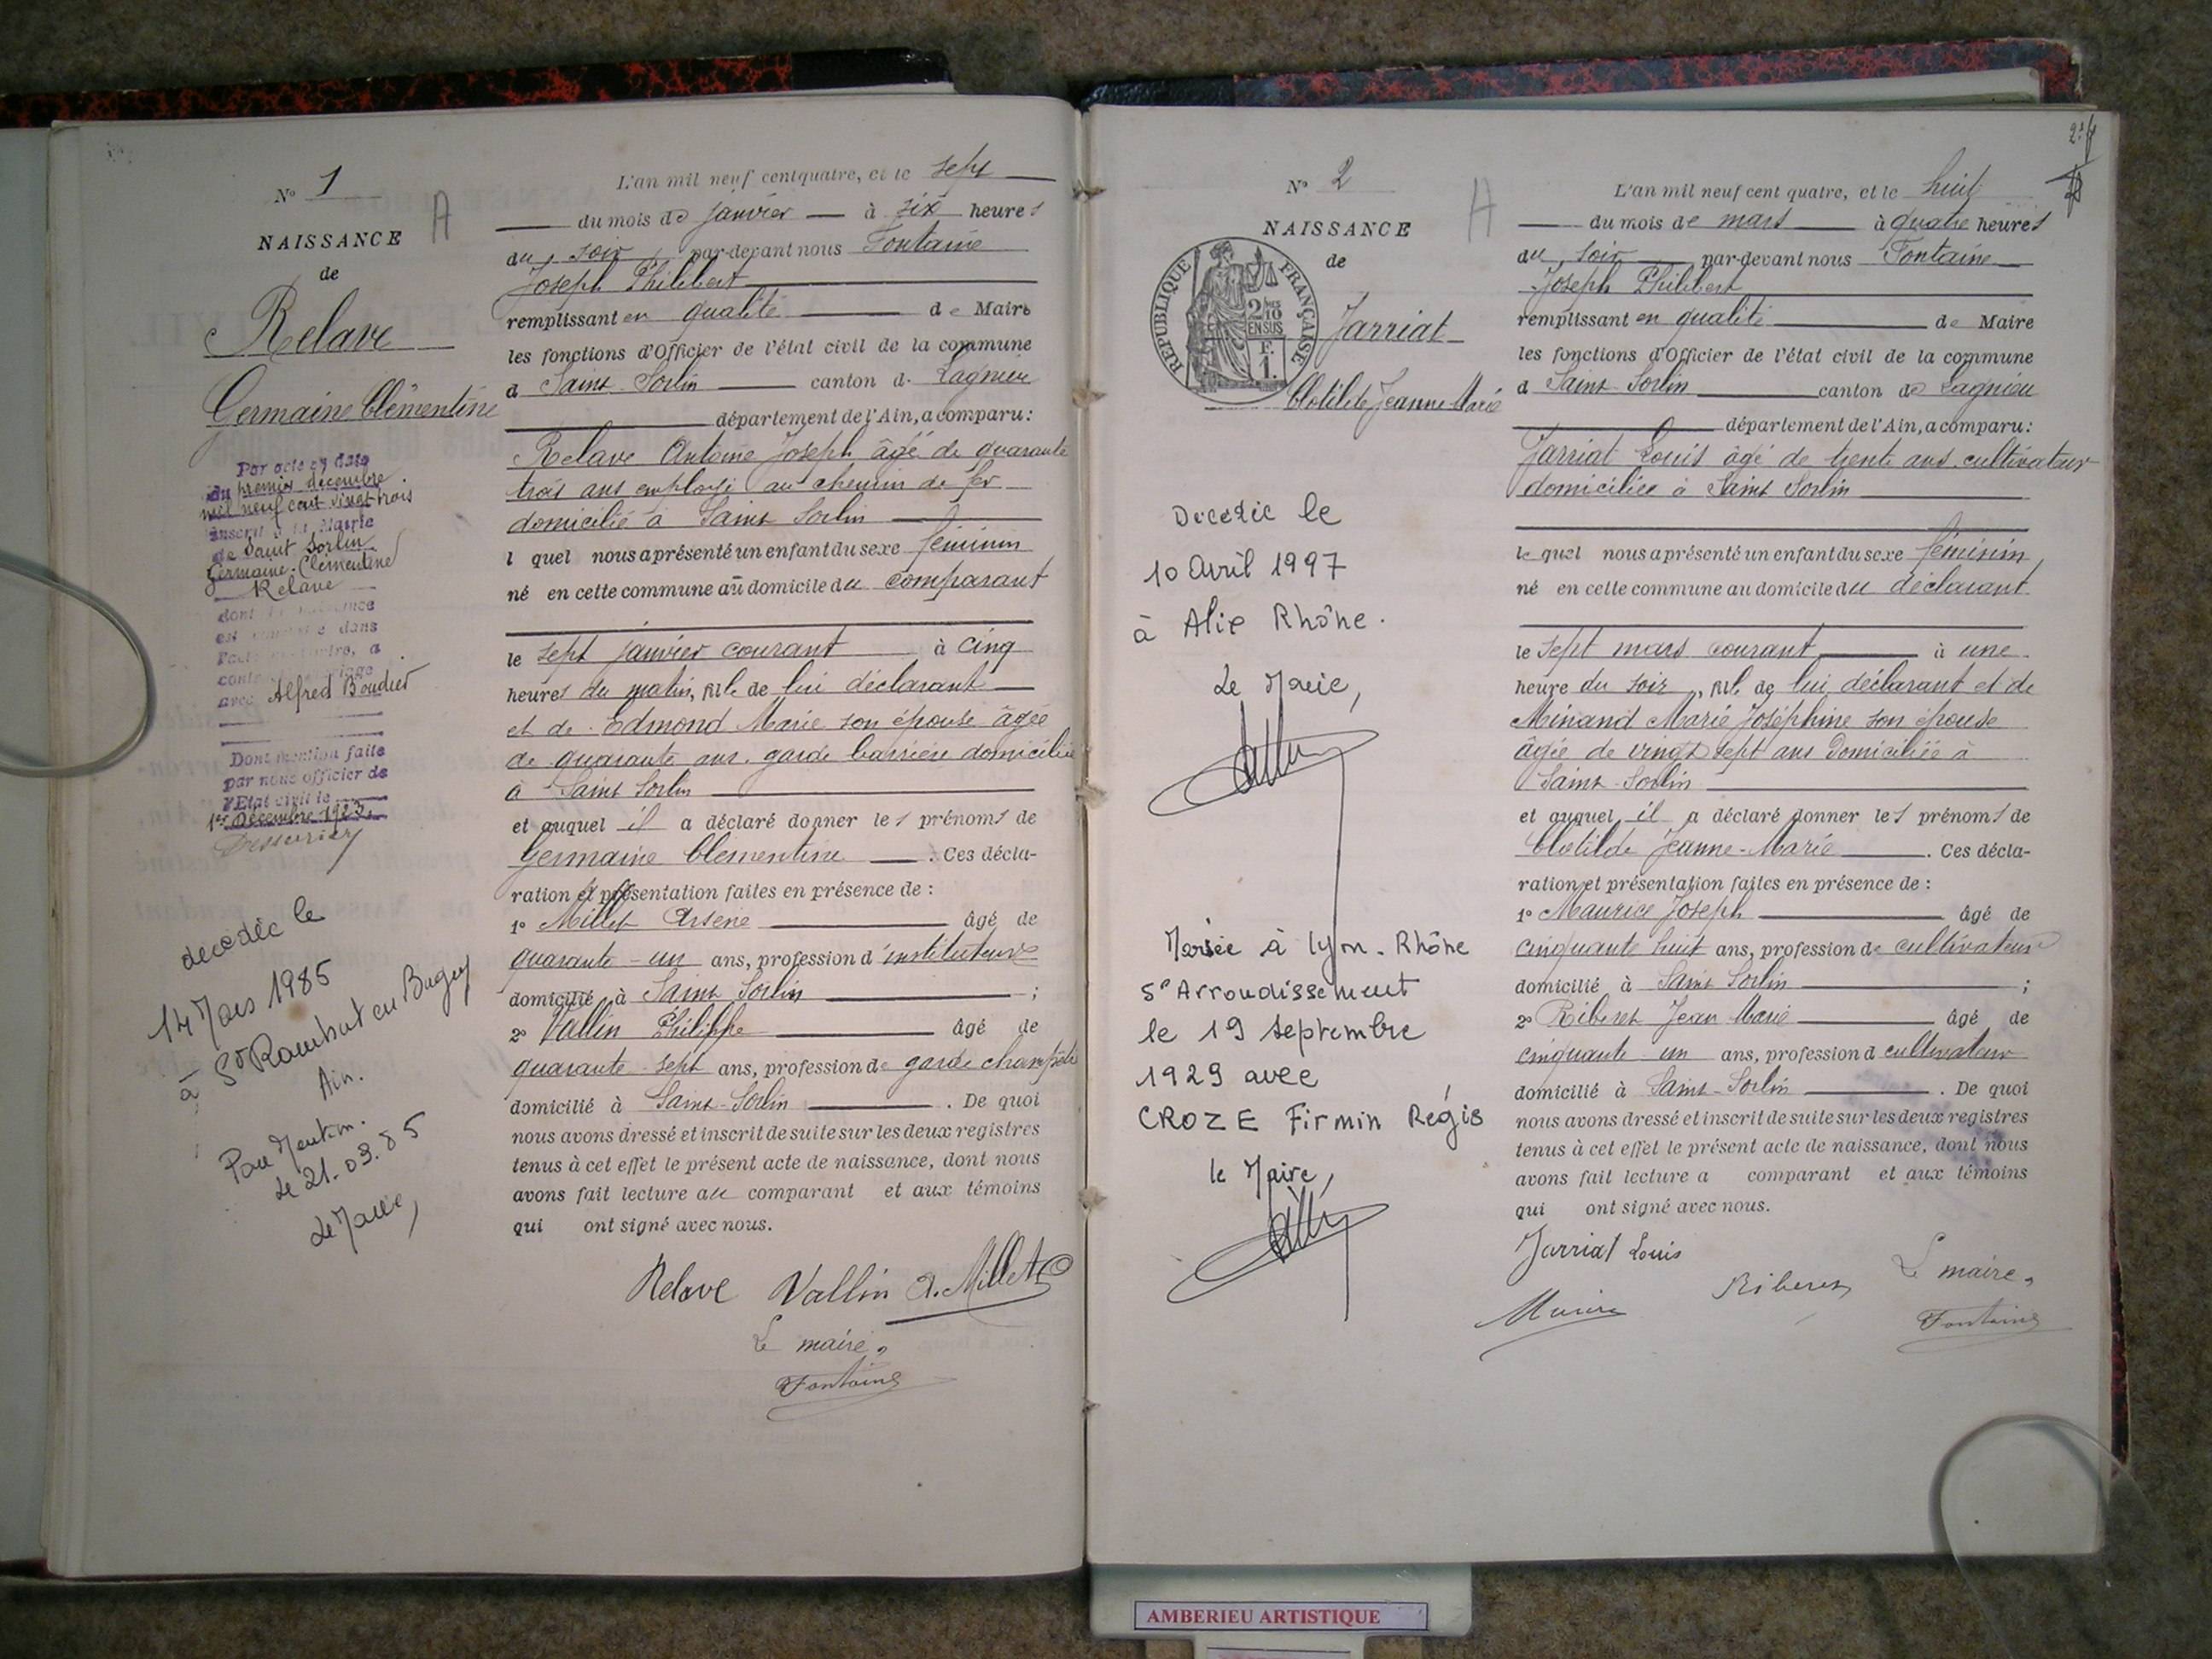 N° 1
NAISSANCE
de
Relave
Germaine Clémentine
Par acte en date
du premier décembre
mil neuf cent vingt trois
inscrit à la Mairie
de Saint Sorlin
Germaine Clémentine
Relave
dont la naissance
est dans
a
avec Alfred Boudier
Dont mention faite
par nous officier de
l'Etat civil le
1er Décembre 1923.
décédée le
14 Mars 1985
à St Rambert en Bugey
Ain.
Pour Mention.
Le 21.03.85
Le Maire,
A
L'an mil neuf cent quatre, et le sept
du mois de janvier à six heures
du soir par-devant nous Fontaine
Joseph Philibert
remplissant en qualité de Maire
les fonctions d'Officier de l'état civil de la commune
d Saint Sorlin canton d. Lagnieu
département de l'Ain, a comparu:
Relave Antoine Joseph âgé de quarante
trois ans employé au chemin de fer
domicilié à Saint Sorlin
l quel nous a présenté un enfant du sexe féminin
né en cette commune au domicile du comparant
le sept janvier courant à cinq
heures du matin, fil de lui déclarant
et de Edmond Marie son épouse âgée
de quarante ans. garde barrière domiciliée
à Saint Sorlin
et auquel il a déclaré donner les prénoms de
Germaine Clémentine . Ces décla-
ration et présentation faites en présence de :
1° Millet Arsene âgé de
quarante-un ans, profession d'instituteur
domicilié à Saint Sorlin ;
2° Vallin Philippe âgé de
quarante-sept ans, profession de garde champêtre
domicilié à Saint-Sorlin . De quoi
nous avons dressé et inscrit de suite sur les deux registres
tenus à cet effet le présent acte de naissance, dont nous
avons fait lecture au comparant et aux témoins
qui ont signé avec nous.
Relave Vallin A. Millet
Le maire,
Fontaine
N° 2
NAISSANCE
de
REPUBLIQUE FRANÇAISE
2/10 EN SUS
F.
1.
Jarriat
Clotilde Jeanne Marie
Décédée le
10 Avril 1997
à Alix Rhône.
Le Maire,
Mariée à Lyon. Rhône
5e Arroudissement
le 19 Septembre
1929 avec
CROZE Firmin Régis
le Maire,
A
L'an mil neuf cent quatre, et le huit
du mois de mars à quatre heures
du soir par-devant nous Fontaine
Joseph Philibert
remplissant en qualité de Maire
les fonctions d'Officier de l'état civil de la commune
d Saint Sorlin canton de Lagnieu
département de l'Ain, a comparu:
Jarriat Louis âgé de trente ans cultivateur
domicilié à Saint Sorlin
le quel nous a présenté un enfant du sexe féminin,
né en cette commune au domicile du déclarant
le sept mars courant à une
heure du soir, fil de lui déclarant et de
Minand Marie Joséphine son épouse
âgée de vingt sept ans domiciliée à
Saint-Sorlin
et auquel il a déclaré donner les prénoms de
Clotilde Jeanne-Marie . Ces décla-
ration et présentation faites en présence de :
1° Maurice Joseph âgé de
cinquante huit ans, profession de cultivateur
domicilié à Saint Sorlin ;
2° Riberet Jean Marie âgé de
cinquante un ans, profession d cultivateur
domicilié à Saint-Sorlin . De quoi
nous avons dressé et inscrit de suite sur les deux registres
tenus à cet effet le présent acte de naissance, dont nous
avons fait lecture a comparant et aux témoins
qui ont signé avec nous.
Jarriat Louis
Riberet
Le maire,
Fontaine
AMBERIEU ARTISTIQUE